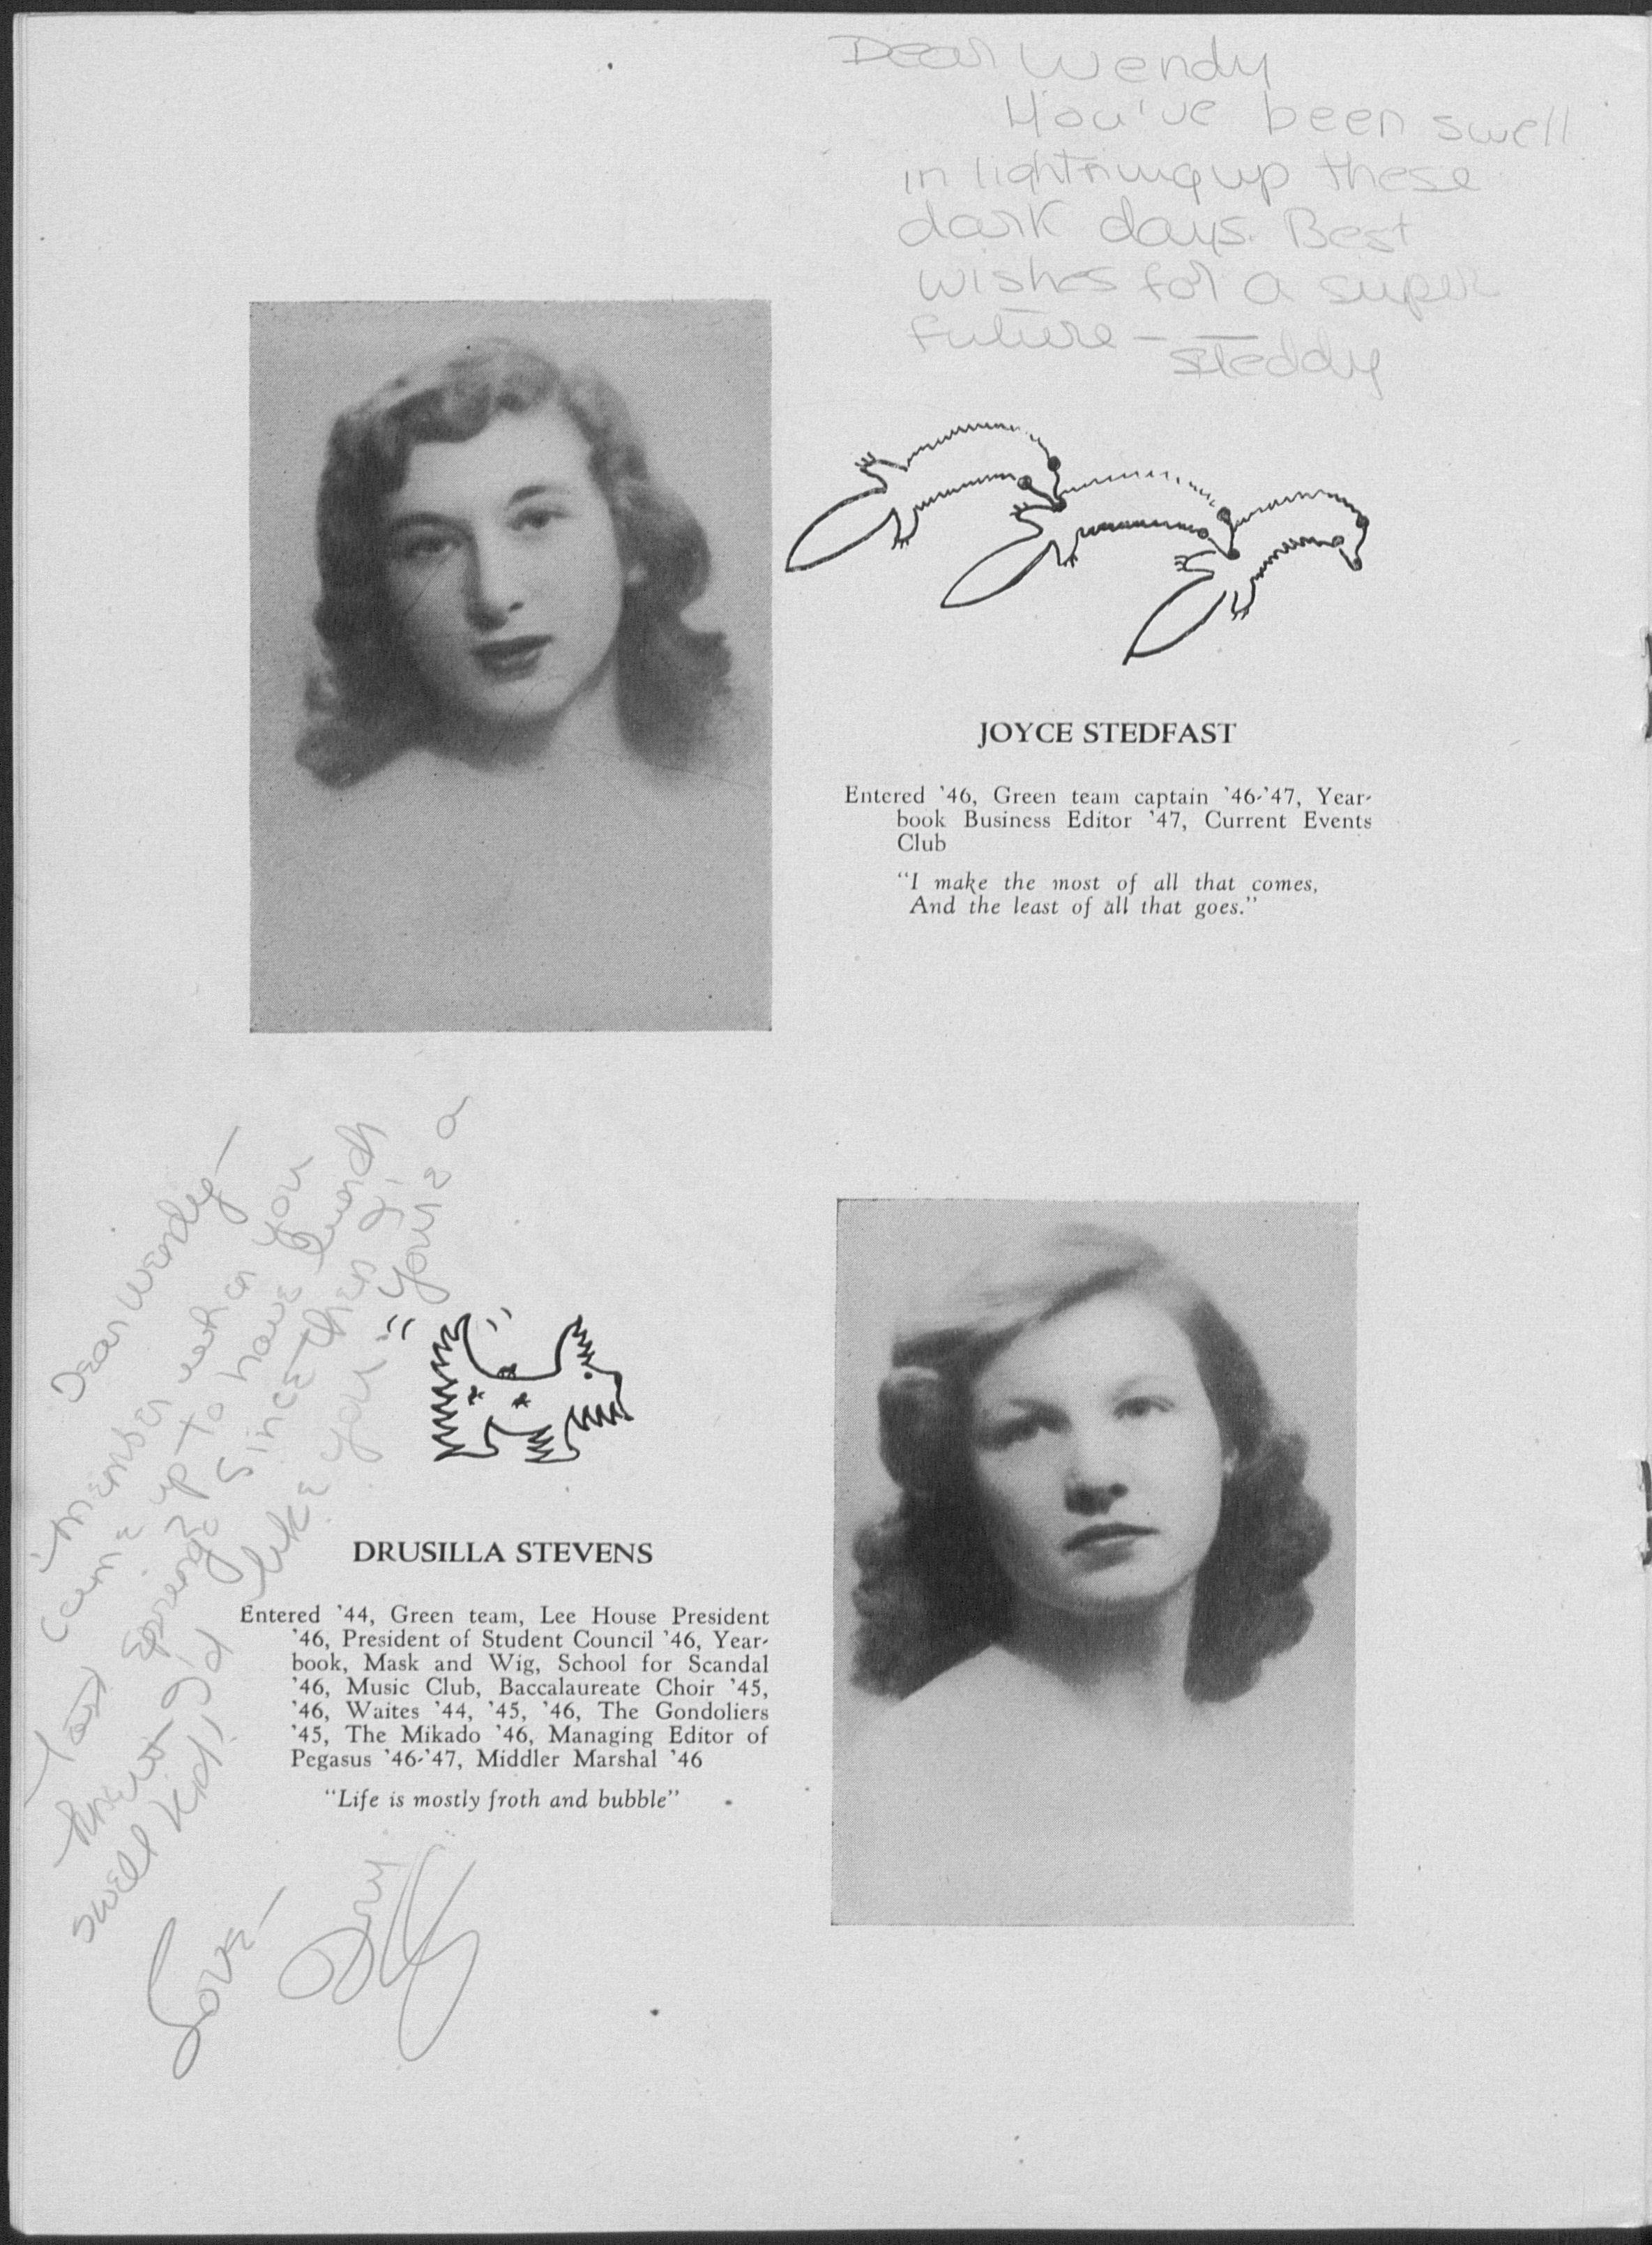 Dear Wendy
You've been swell
in lightning up these
dark days. Best
wishes for a super
future — Steddy
JOYCE STEDFAST
Entered '46, Green team captain '46-'47, Year-
book Business Editor '47, Current Events
Club
"I make the most of all that comes,
And the least of all that goes."
Dear Wendy—
'member when you
came up to have lunch
last spring? Since then I
knew I'd like you – you're a
swell kid!
Love—
Dru
DRUSILLA STEVENS
Entered '44, Green team, Lee House President
'46, President of Student Council '46, Year-
book, Mask and Wig, School for Scandal
'46, Music Club, Baccalaureate Choir '45,
'46, Waites '44, '45, '46, The Gondoliers
'45, The Mikado '46, Managing Editor of
Pegasus '46-'47, Middler Marshal '46
"Life is mostly froth and bubble"